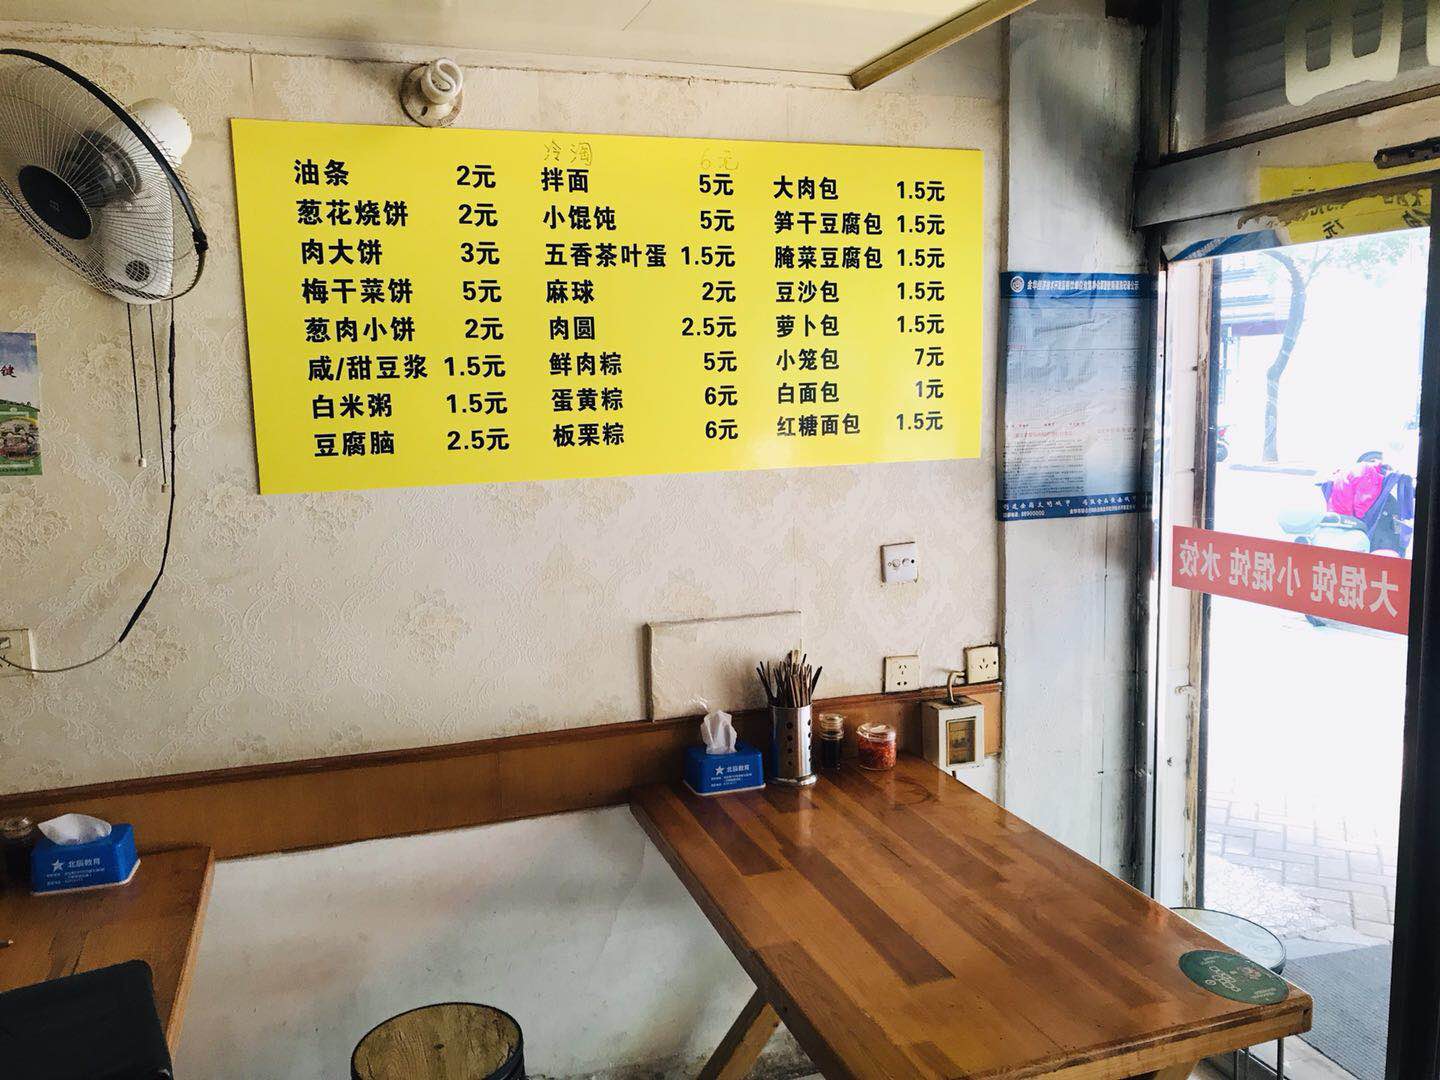 冷淘 6元
油条 2元 拌面 5元 大肉包 1.5元
葱花烧饼 2元 小馄饨 5元 笋干豆腐包 1.5元
肉大饼 3元 五香茶叶蛋 1.5元 腌菜豆腐包 1.5元
梅干菜饼 5元 麻球 2元 豆沙包 1.5元
葱肉小饼 2元 肉圆 2.5元 萝卜包 1.5元
咸/甜豆浆 1.5元 鲜肉粽 5元 小笼包 7元
白米粥 1.5元 蛋黄粽 6元 白面包 1元
豆腐脑 2.5元 板栗粽 6元 红糖面包 1.5元
大馄饨 小馄饨 水饺
北辰教育
北辰教育
键